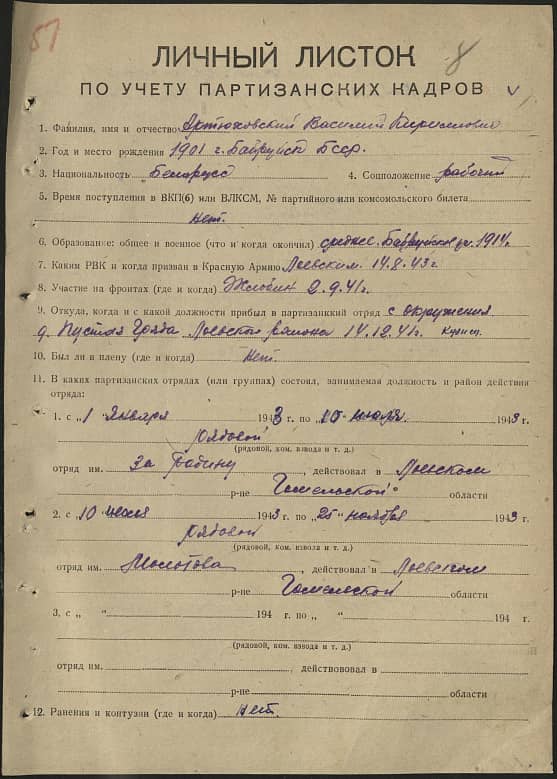 51
8
ЛИЧНЫЙ ЛИСТОК
ПО УЧЕТУ ПАРТИЗАНСКИХ КАДРОВ
1. Фамилия, имя и отчество Артюховский Василий
2. Год и место рождения 1901 г. Бабруйск Бсср.
3. Национальность Белорусс 4. Соцположение рабочий
5. Время поступления в ВКП(б) или ВЛКСМ, № партийного или комсомольского билета
Нет.
6. Образование: общее и военное (что и когда окончил) среднее. 1914г.
7. Каким РВК и когда призван в Красную Армию Лоевским. 14.8.43г.
8. Участие на фронтах (где и когда) Жлобин 2.9.41г.
9. Откуда, когда и с какой должности прибыл в партизанкий отряд с окружения
д. Пустая Гряда Лоевского района 14.12.41г.
10. Был ли в плену (где и когда) Нет.
11. В каких партизанских отрядах (или группах) состоял, занимаемая должность и район действия
отряда:
1. с „1 января 1943 г. по „10 июля. 1943 г.
рядовой
(рядовой, ком. взвода и т. д.)
отряд им. За Родину, действовал в Лоевском
р-не Гомельской области
2. с „10 июля 1943 г. по „25" ноября 1943 г.
рядовой
(рядовой, ком. взвола и т. д.)
отряд им. Молотова, действовал в Лоевском
р-не Гомельской области
3, с „ “ 194 г. по „ “ 194 г.
(рядовой, ком. взвода и т. д.)
отряд им. , действововал в
р-не области
12. Ранения и контузии (где и когда) Нет.